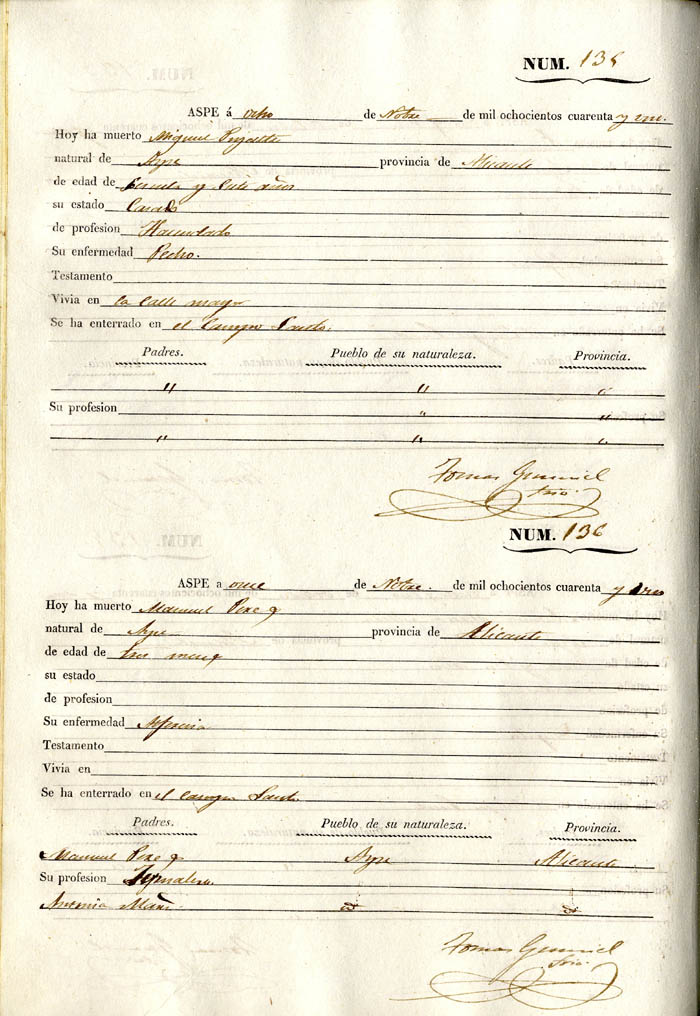 NUM. 135
ASPE á ocho de Nobre de mil ochocientos cuarenta y uno.
Hoy ha muerto Miguel
natural de Aspe provincia de Alicante
de edad de y siete años
su estado Casado
de profesion Hacendado
Su enfermedad Pecho.
Testamento
Vivia en la Calle mayor
Se ha enterrado en el Campo Santo.
Padres. Pueblo de su naturaleza. Provincia.
" " "
Su profesion " "
" " "
Tomas
Srio.
NUM. 136
ASPE a once de Nobre. de mil ochocientos cuarenta y uno
Hoy ha muerto Manuel Perez
natural de Aspe provincia de Alicante
de edad de tres meses
su estado
de profesion
Su enfermedad
Testamento
Vivia en
Se ha enterrado en el Campo Santo
Padres. Pueblo de su naturaleza. Provincia.
Manuel Perez Aspe Alicante
Su profesion Jornalero
Antonia
Tomas
Srio.